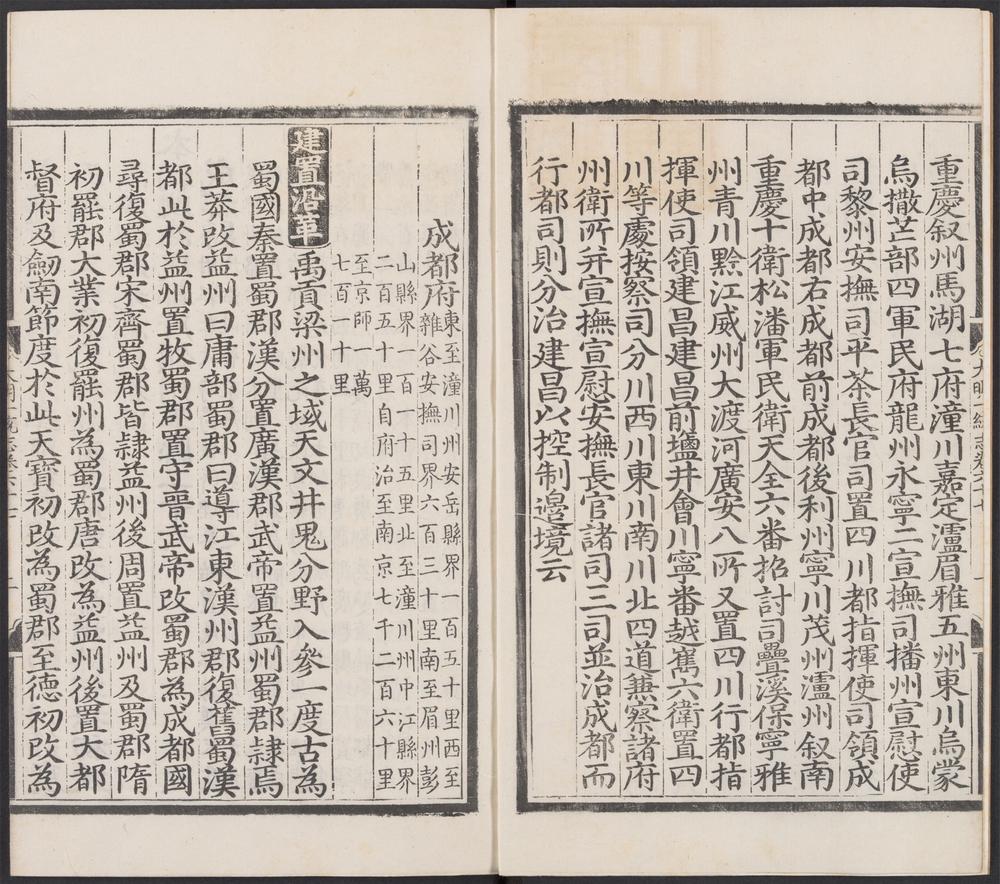 重慶叙州馬湖七府潼川嘉定瀘眉雅五州東川烏蒙
烏撒芒部四軍民府龍州永寧二宣撫司播州宣慰使
司黎州安撫司平茶長官司置四川都指揮使司領成
都中成都右成都前成都後利州寧川茂州瀘州叙南
重慶十衛松潘軍民衛天全六番招討司疊溪保寧雅
州青川黔江威州大渡河廣安八所又置四川行都指
揮使司領建昌建昌前壚井會川寧番越嶲六衛置四
川等處按察司分川西川東川南川北四道兼察諸府
州衛所并宣撫宣慰安撫長官諸司三司並治成都而
行都司則分治建昌以控制邊境云
大明一統志卷六十七
成都府東至潼川州安岳縣界一百五十里西至
雜谷安撫司界六百三十里南至眉州彭
山縣界一百一十五里北至潼川州中江縣界
二百五十里自府治至南京七千二百六十里
至京師一萬
七百一十里
建置沿革禹貢梁州之域天文井鬼分野入參一度古為
蜀國秦置蜀郡漢分置廣漢郡武帝置益州蜀郡隷焉
王莽改益州曰庸部蜀郡曰導江東漢州郡復舊蜀漢
都此於益州置牧蜀郡置守晉武帝改蜀郡為成都國
尋復蜀郡宋齊蜀郡皆隷益州後周置益州及蜀郡隋
初罷郡大業初復罷州為蜀郡唐改為益州後置大都
督府及劒南節度於此天寶初改為蜀郡至德初改為